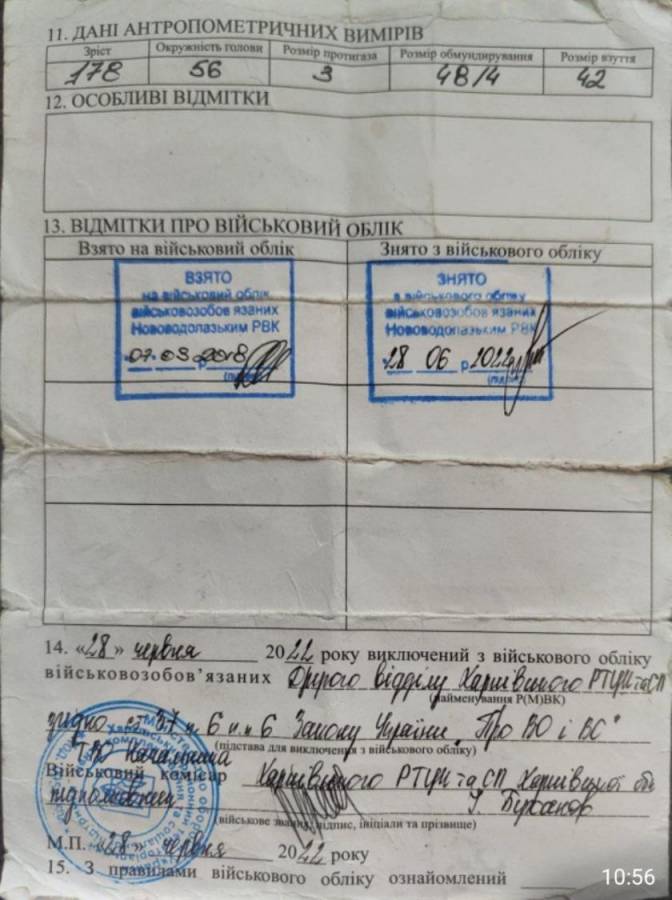 11. ДАНІ АНТРОПОМЕТРИЧНИХ ВИМІРІВ
Зріст Окружність голови Розмір протигаза Розмір обмундирування Розмір взуття
178 56 3 48/4 42
12. ОСОБЛИВІ ВІДМІТКИ
13. ВІДМІТКИ ПРО ВІЙСЬКОВИЙ ОБЛІК
Взято на військовий облік Знято з військового обліку
ВЗЯТО
на військовий облік
військовозобов язаних
Нововодолазьким РВК
07.03.2018
ЗНЯТО
з військового обліку
військовозобов язаних
Нововодолазьким РВК
28 06 р 2022
(підпис)
14. «28» червня 2022 року виключений з військового обліку
військовозобов’язаних Другого відділу Харківського РТЦК та СП
(найменування Р(М)ВК)
згідно ст 37 п. 6 п.п 6 Закону України „Про ВО і ВС"
(підстава для виключення з військового обліку)
ТВО Начальника
Військовий комісар Харківського РТЦК та СП Харківської обл
підполковник
(військове звання, підпис, ініціали та прізвище)
М.П. «28» червня 2022 року
15. З правилами військового обліку ознайомлений
10:56